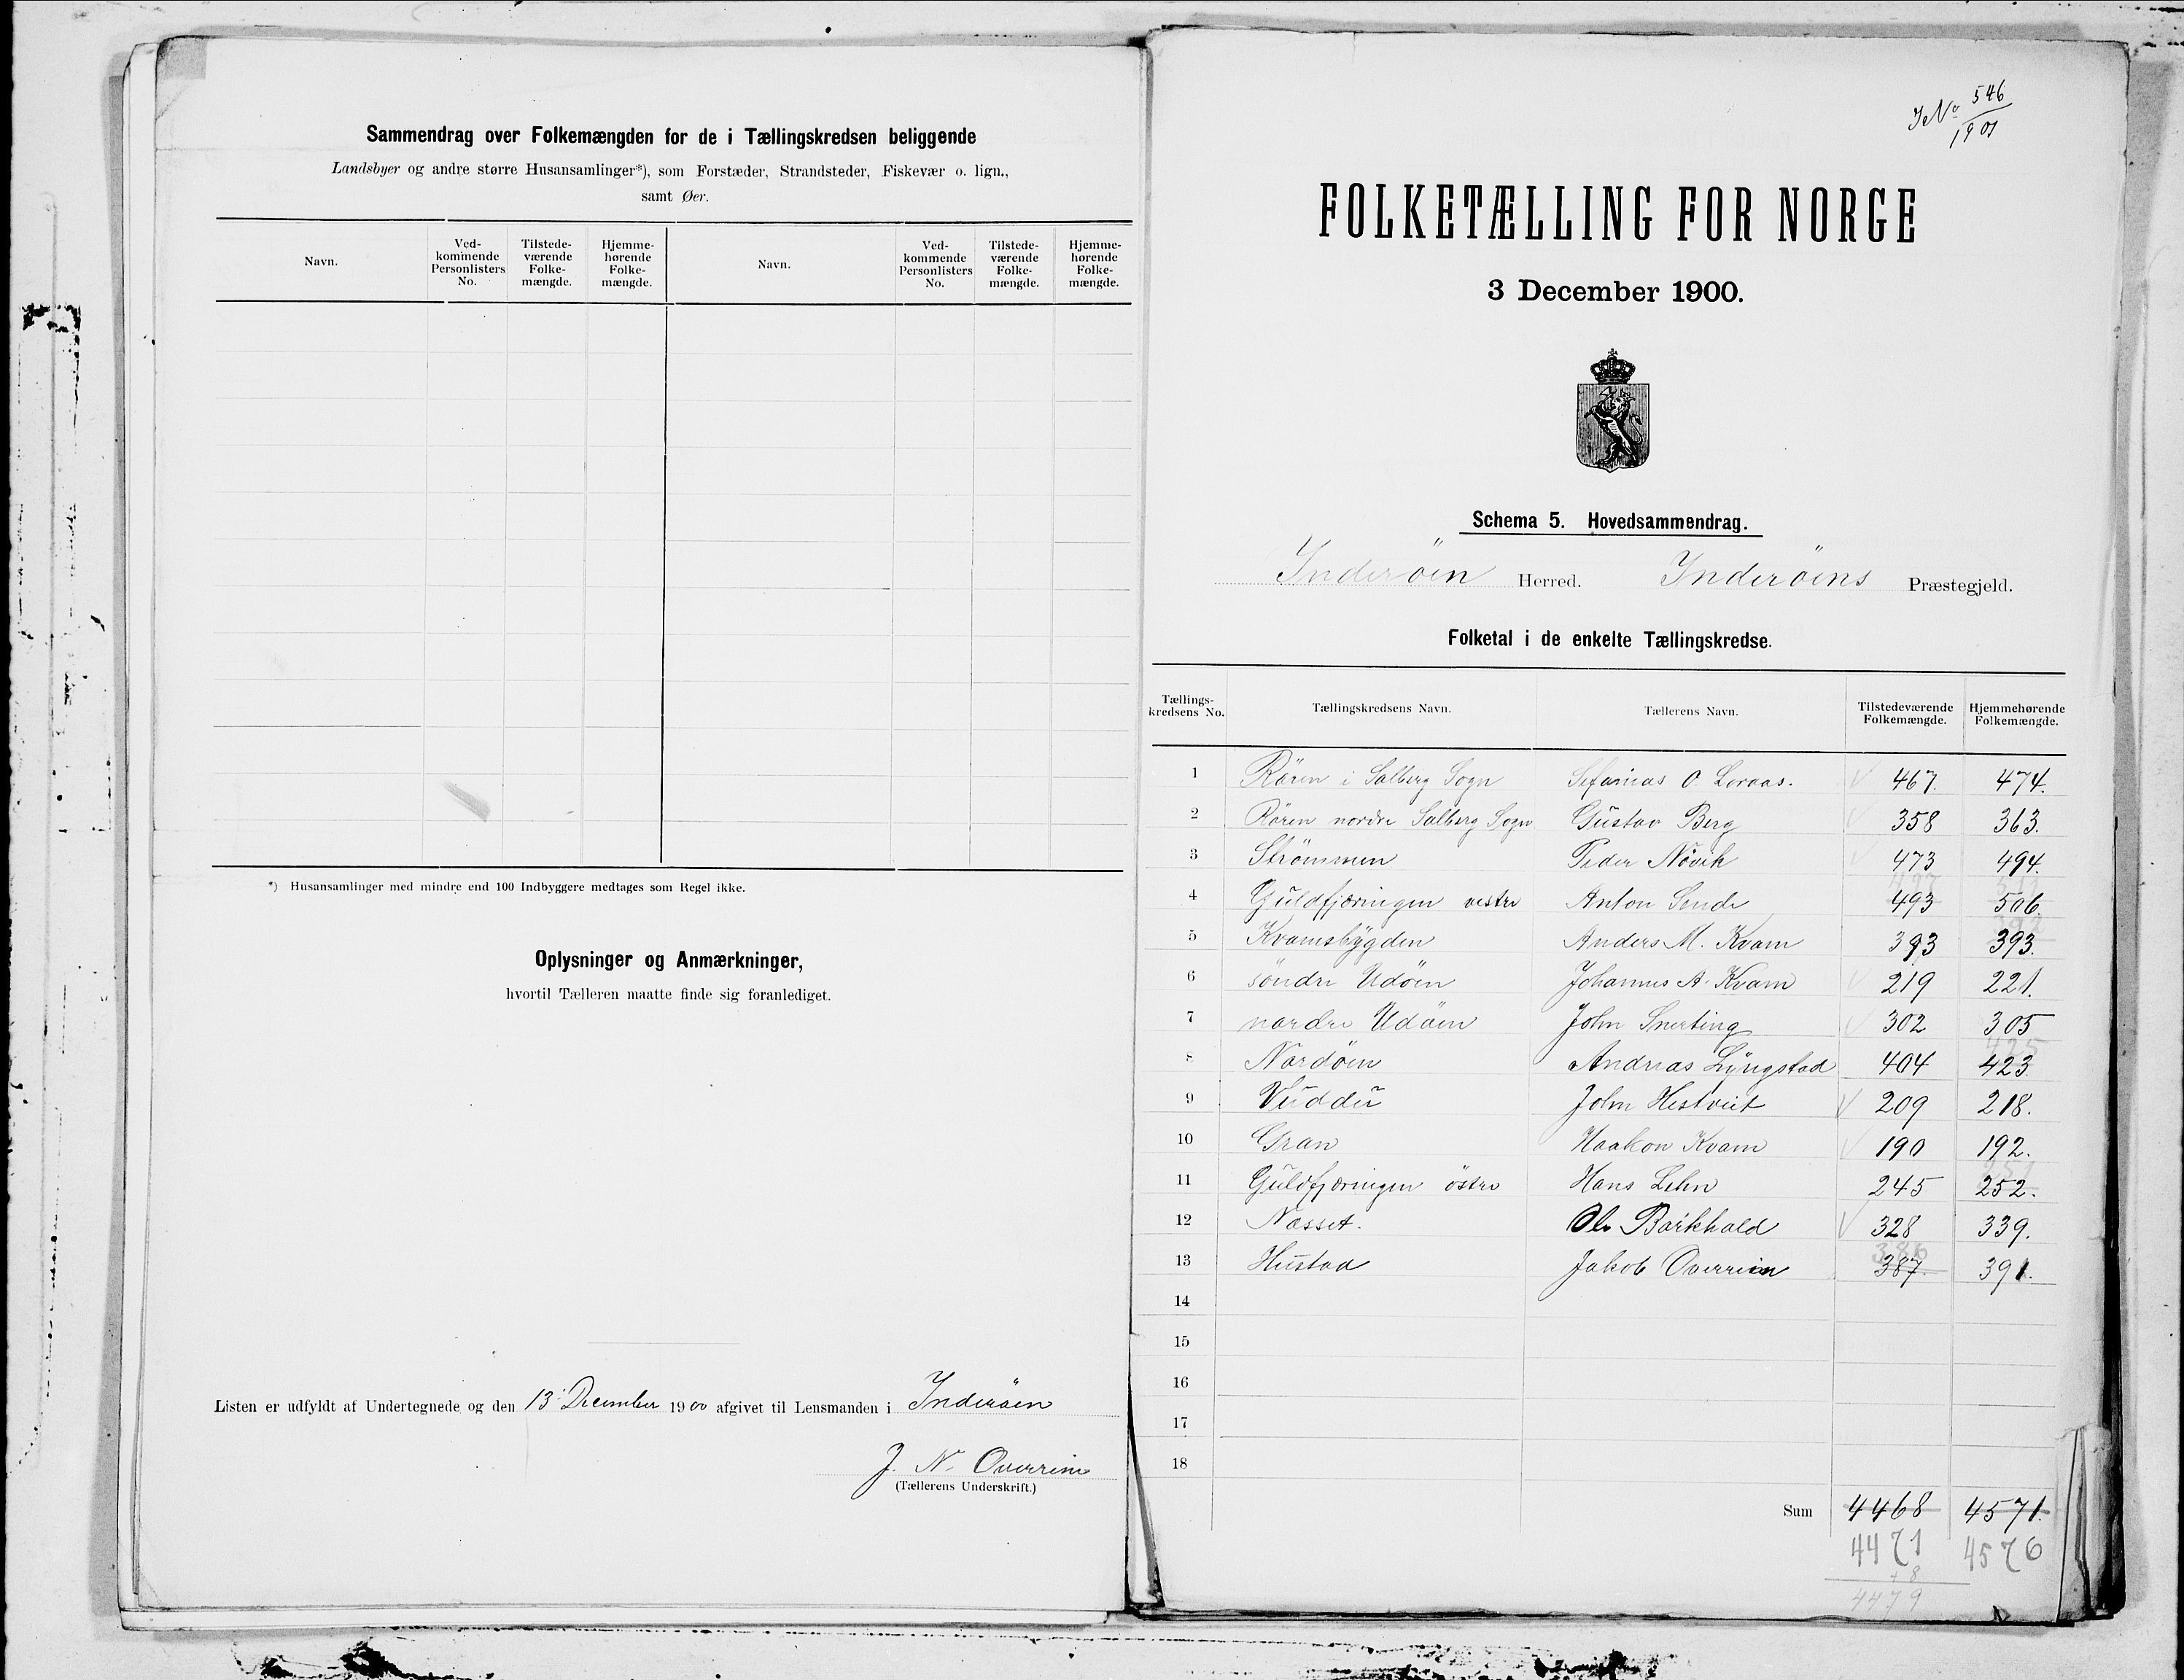 Sammendrag over Folkemængden for de i Tællingskredsen beliggende
Landsbyer og andre større Husansamlinger*), som Forstæder, Strandsteder, Fiskevær o. lign.,
samt Øer.
Navn. Ved-kommende Personlisters No. Tilstede-værende Folke-mængde. Hjemme-hørende Folke-mængde. Navn. Ved-kommende Personlisters No. Tilstede-værende Folke-mængde. Hjemme-hørende Folke-mængde.
*) Husansamlinger med mindre end 100 Indbyggere medtages som Regel ikke.
Oplysninger og Anmærkninger,
hvortil Tælleren maatte finde sig foranlediget.
Listen er udfyldt af Undertegnede og den 13 December 1900 afgivet til Lensmanden i Inderöen
J. N. Overrein
(Tællerens Underskrift.)
JNo 546
1901
FOLKETÆLLING FOR NORGE
3 December 1900.
Schema 5. Hovedsammendrag.
Inderöen Herred. Inderöens Præstegjeld.
Folketal i de enkelte Tællingskredse.
Tællings-kredsens No. Tællingskredsens Navn. Tællerens Navn. Tilstedeværende Folkemængde. Hjemmehørende Folkemængde.
1 Rören i Salberg Sogn Sefanias O. Loraas. 467. 474.
2 Rören nordre Salberg Sogn Gustav Berg 358 363.
3 Strömmen Peder Növik 473 494.
4 Guldfjæringen vestre Anton Sende 493 506.
5 Kvamsbygden Anders M. Kvam 393 393.
6 söndre Udöen Johannes A. Kvam 219 221.
7 nordre Udöen John Snerting 302 305
425
8 Nordöen Andreas Lyngstad 404 423.
9 Vuddu John Hestveit 209 218.
10 Gran Haakon Kvam 190 192.
251
11 Guldfjæringen östre Hans Lehn 245 252.
12 Næsset. Ole Barkhald 328 339.
386
13 Hustad Jakob Overrein 387. 391.
14
15
16
17
18
Sum 4468 4571.
4471 4576
+ 8
4479